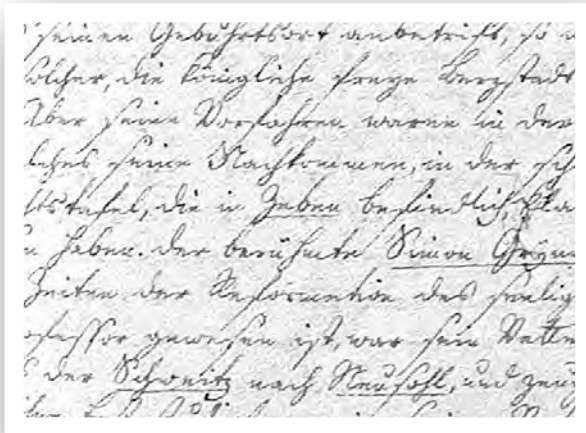 seinen Gebuhrtsort anbetrift, so
solcher, die königliche freye Bergstadt
Aber seine Vorfahren waren in der
seine Nachkommen, in der
die in befindlich,
haben. der berühmte Simon Gryn
Zeiten der Reformation des seelig
ofessor gewesen ist, war sein Vette
der Schweitz nach Neusohl, und zeug